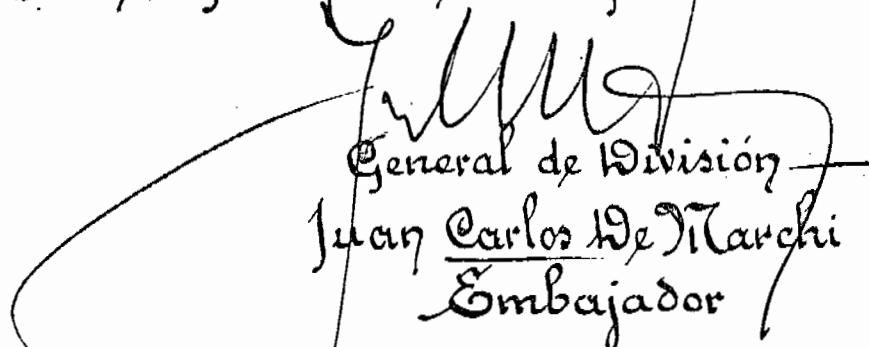 General de División
Juan Carlos De Marchi
Embajador